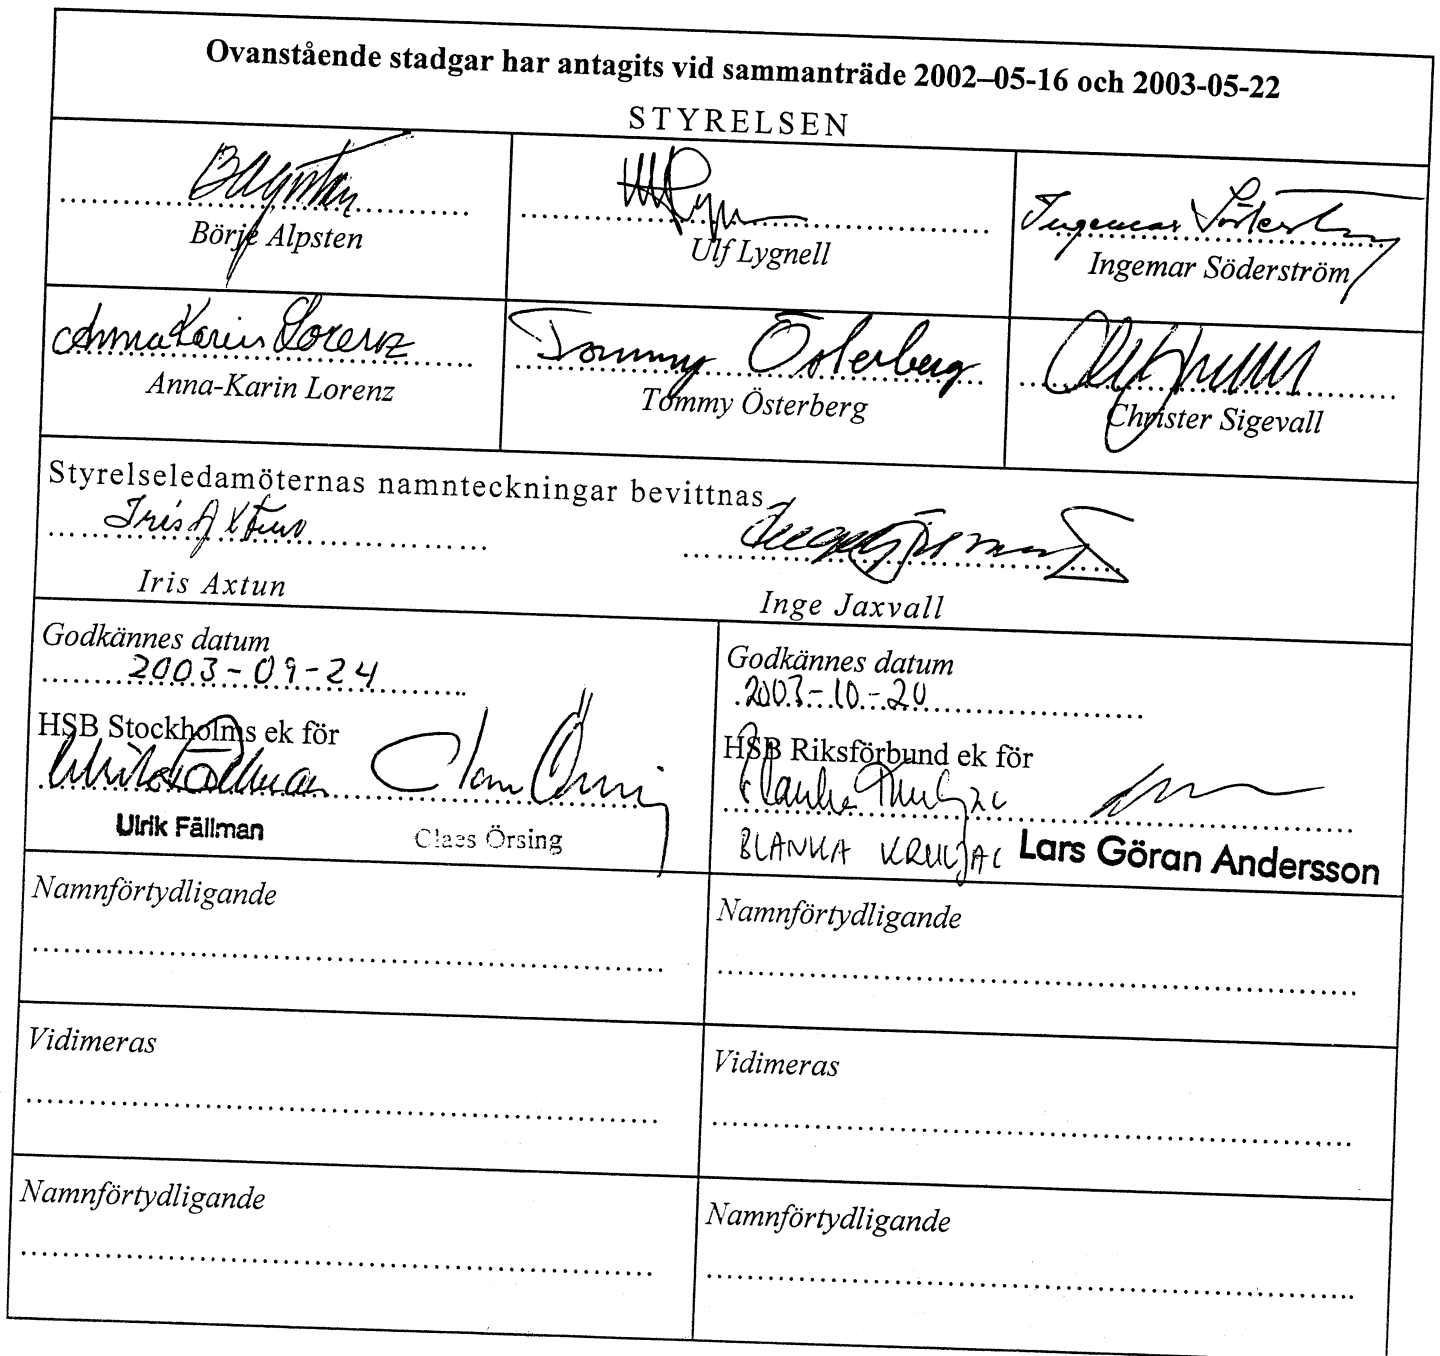 Ovanstående stadgar har antagits vid sammanträde 2002–05-16 och 2003-05-22
STYRELSEN
Börje Alpsten
Ulf Lygnell
Ingemar Söderström
Anna Karin Lorenz
Tommy Österberg
Anna-Karin Lorenz
Tommy Österberg
Christer Sigevall
Styrelseledamöternas namnteckningar bevittnas
Iris Axtun
Iris Axtun
Inge Jaxvall
Godkännes datum
2003-09-24
HSB Stockholms ek för
Ulrik Fällman
Ulrik Fällman
Claes Örsing
Godkännes datum
2003-10-20
HSB Riksförbund ek för
Blanka Kruljac
BLANKA KRULJAC
Lars Göran Andersson
Namnförtydligande
Namnförtydligande
Vidimeras
Vidimeras
Namnförtydligande
Namnförtydligande